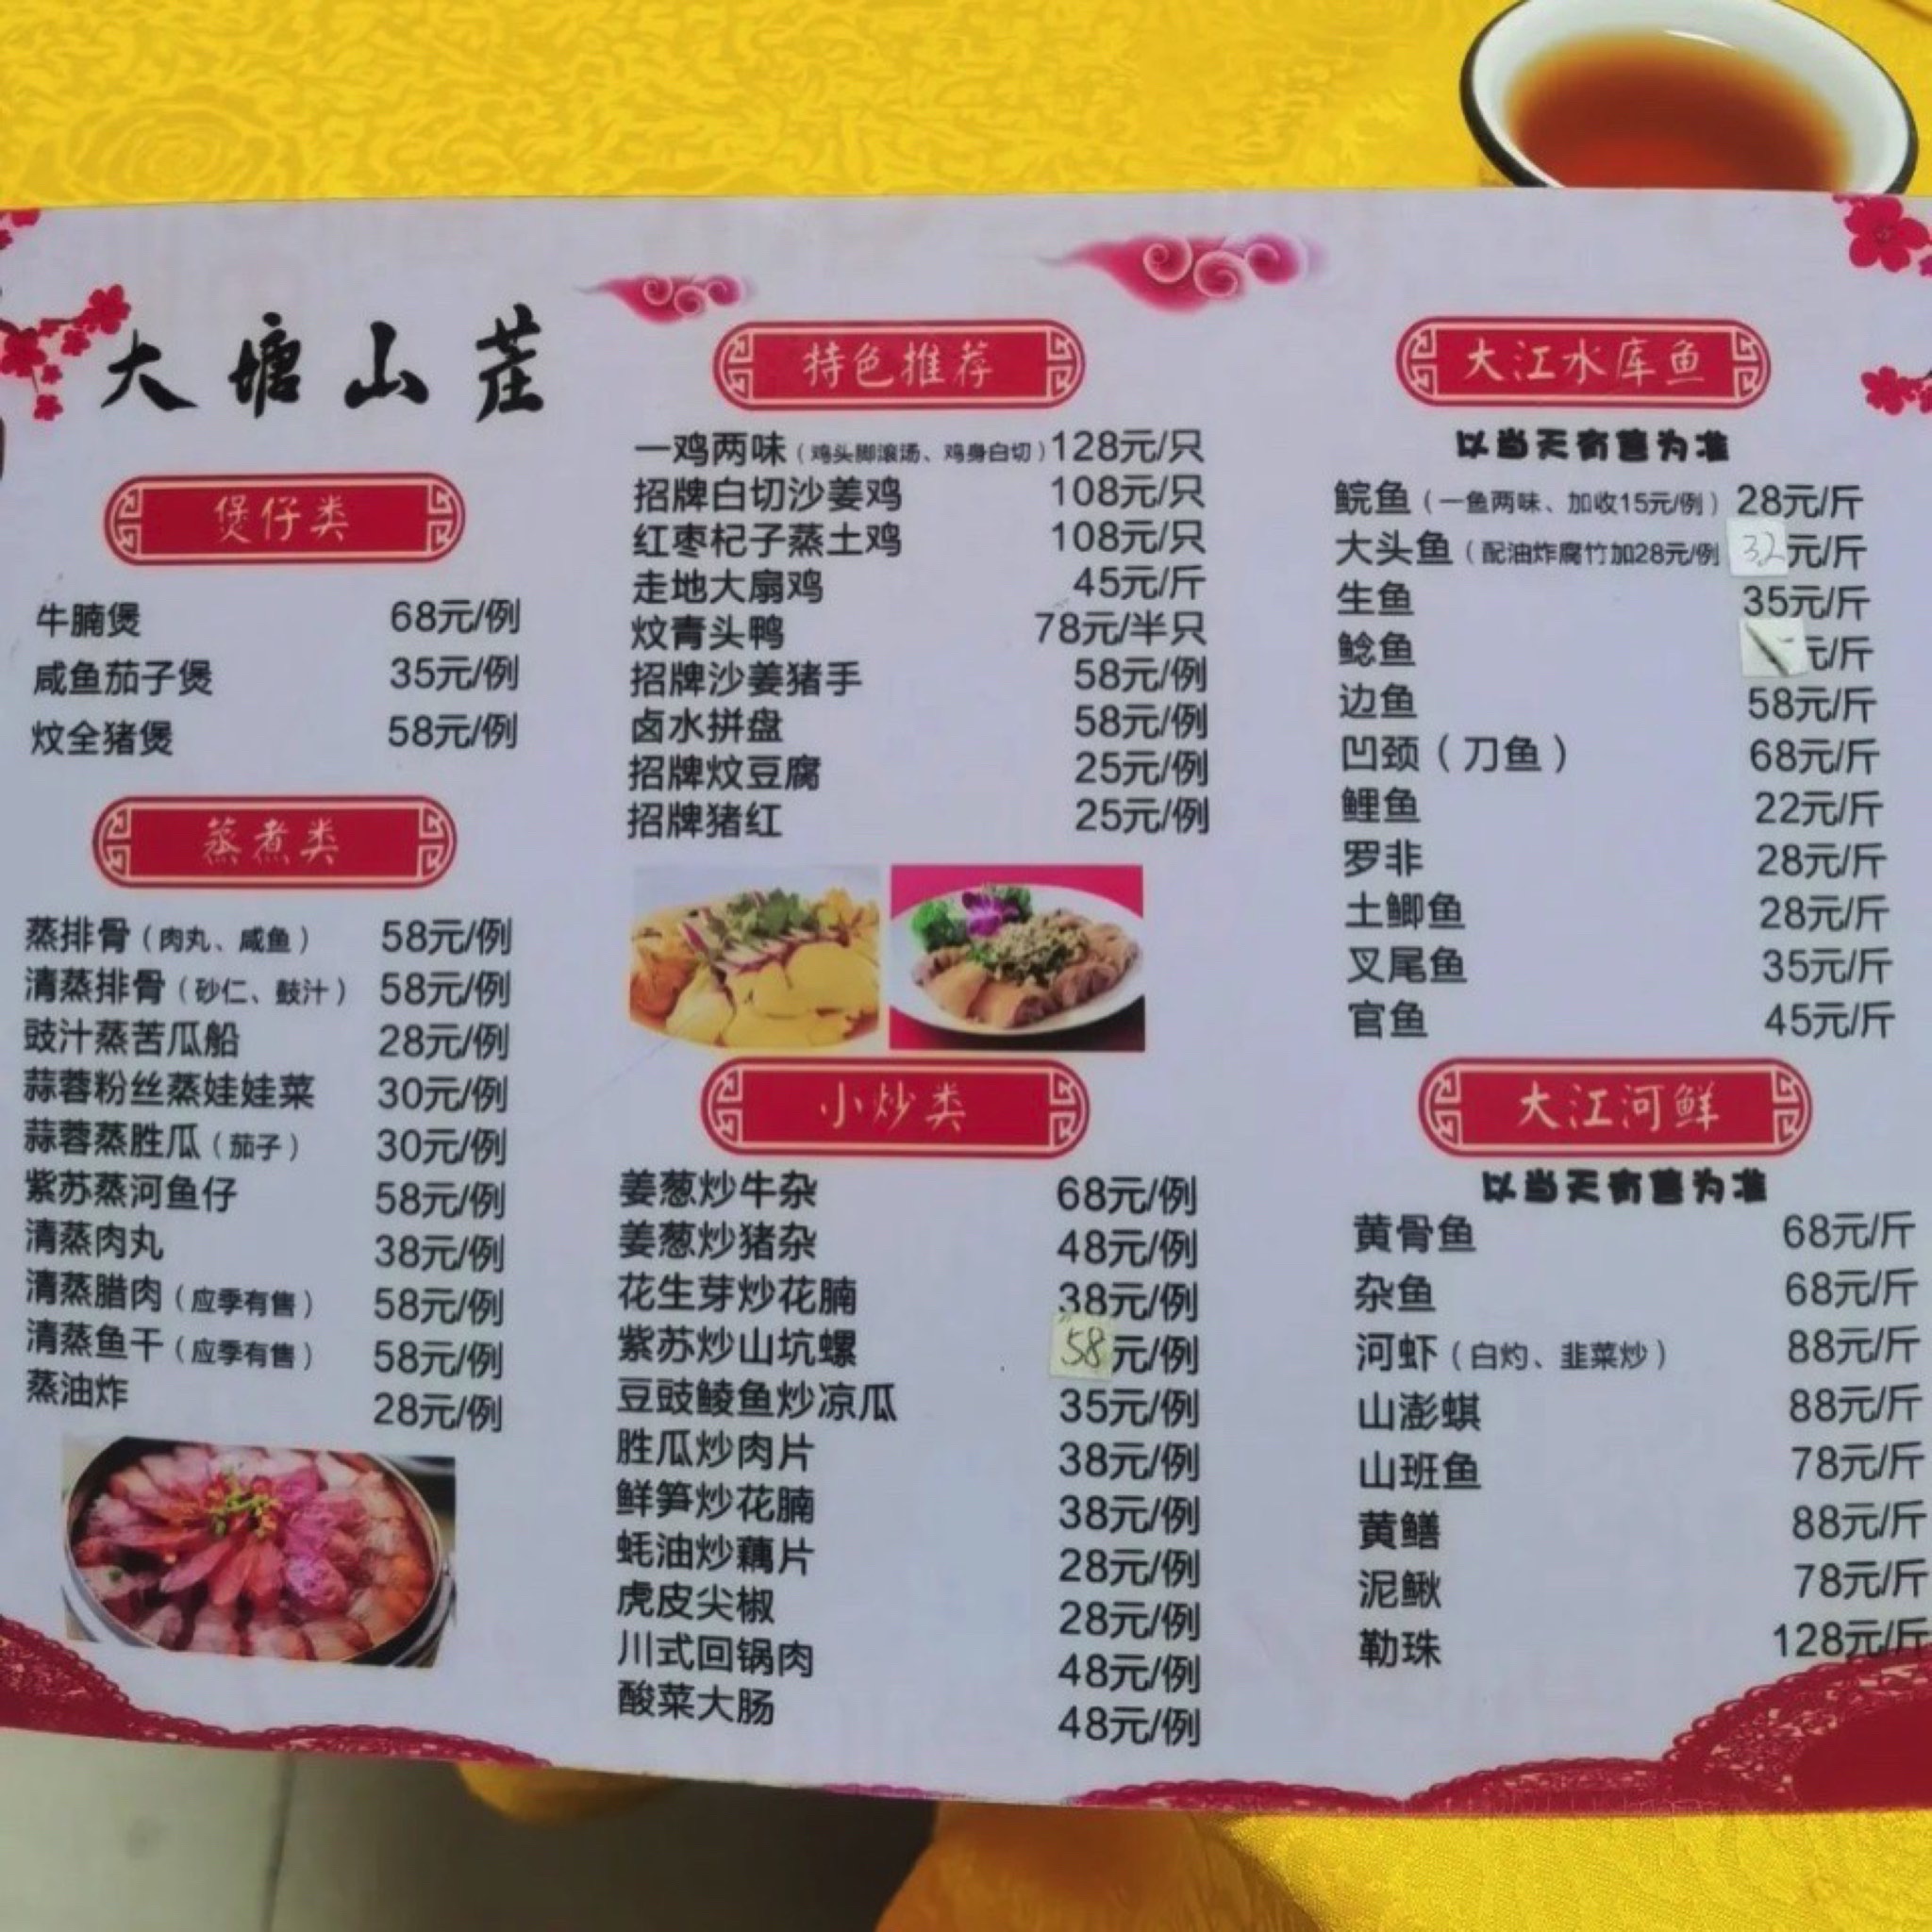 大塘山茬
煲仔类
牛腩煲 68元/例
咸鱼茄子煲 35元/例
炆全猪煲 58元/例
蒸煮类
蒸排骨（肉丸、咸鱼） 58元/例
清蒸排骨（砂仁、鼓汁） 58元/例
豉汁蒸苦瓜船 28元/例
蒜蓉粉丝蒸娃娃菜 30元/例
蒜蓉蒸胜瓜（茄子） 30元/例
紫苏蒸河鱼仔 58元/例
清蒸肉丸 38元/例
清蒸腊肉（应季有售） 58元/例
清蒸鱼干（应季有售） 58元/例
蒸油炸 28元/例
特色推荐
一鸡两味（鸡头脚滚汤、鸡身白切）128元/只
招牌白切沙姜鸡 108元/只
红枣杞子蒸土鸡 108元/只
走地大扇鸡 45元/斤
炆青头鸭 78元/半只
招牌沙姜猪手 58元/例
卤水拼盘 58元/例
招牌炆豆腐 25元/例
招牌猪红 25元/例
小炒类
姜葱炒牛杂 68元/例
姜葱炒猪杂 48元/例
花生芽炒花腩 38元/例
紫苏炒山坑螺 58元/例
豆豉鲮鱼炒凉瓜 35元/例
胜瓜炒肉片 38元/例
鲜笋炒花腩 38元/例
蚝油炒藕片 28元/例
虎皮尖椒 28元/例
川式回锅肉 48元/例
酸菜大肠 48元/例
大江水库鱼
以当天有售为准
鲩鱼（一鱼两味、加收15元/例） 28元/斤
大头鱼（配油炸腐竹加28元/例 32元/斤
生鱼 35元/斤
鲶鱼 元/斤
边鱼 58元/斤
凹颈（刀鱼） 68元/斤
鲤鱼 22元/斤
罗非 28元/斤
土鲫鱼 28元/斤
叉尾鱼 35元/斤
官鱼 45元/斤
大江河鲜
以当天有售为准
黄骨鱼 68元/斤
杂鱼 68元/斤
河虾（白灼、韭菜炒） 88元/斤
山澎蜞 88元/斤
山班鱼 78元/斤
黄鳝 88元/斤
泥鳅 78元/斤
勒珠 128元/斤